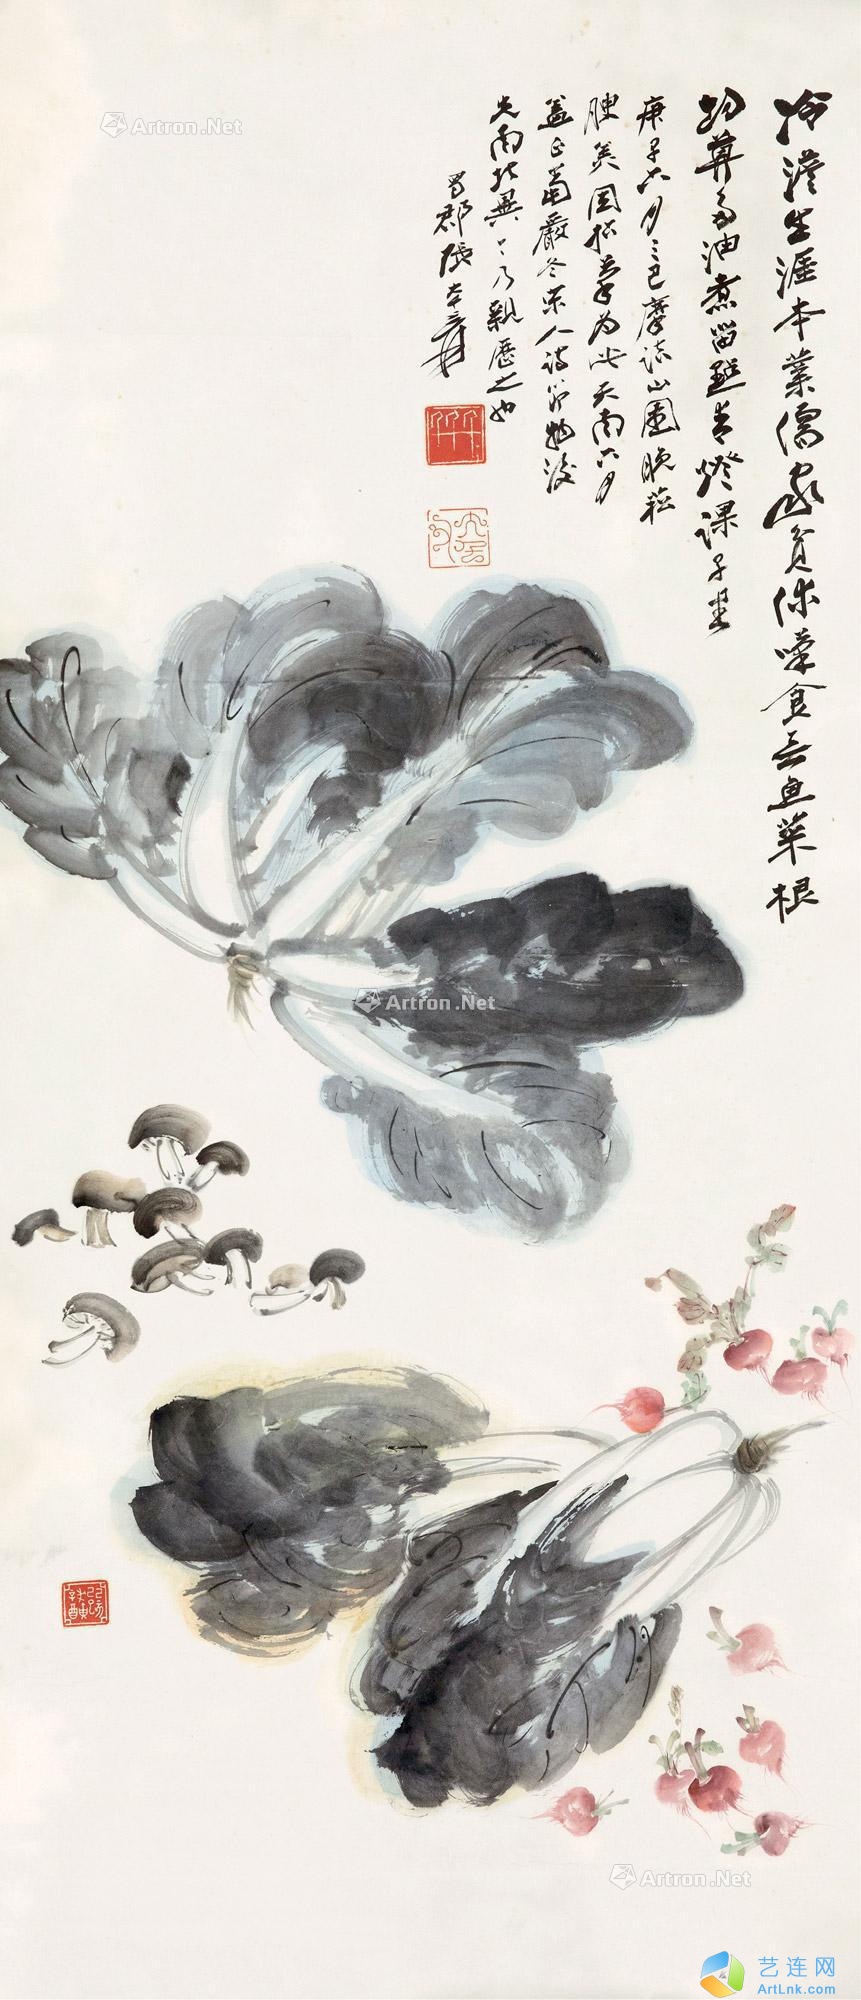 冷澹生涯本業儒家貧休嘆食無魚菜根
切莫多油煮留點青燈課子書
庚子六月三巴摩詰山園晚菘
腴美因拈筆為此天南六月
蓋正當嚴冬宋人詩節物後
先南北異乃親歷之也
蜀郡張大千爰
Artron.Net
Artron.Net
Artron.Net
艺连网
ArtLnk.com